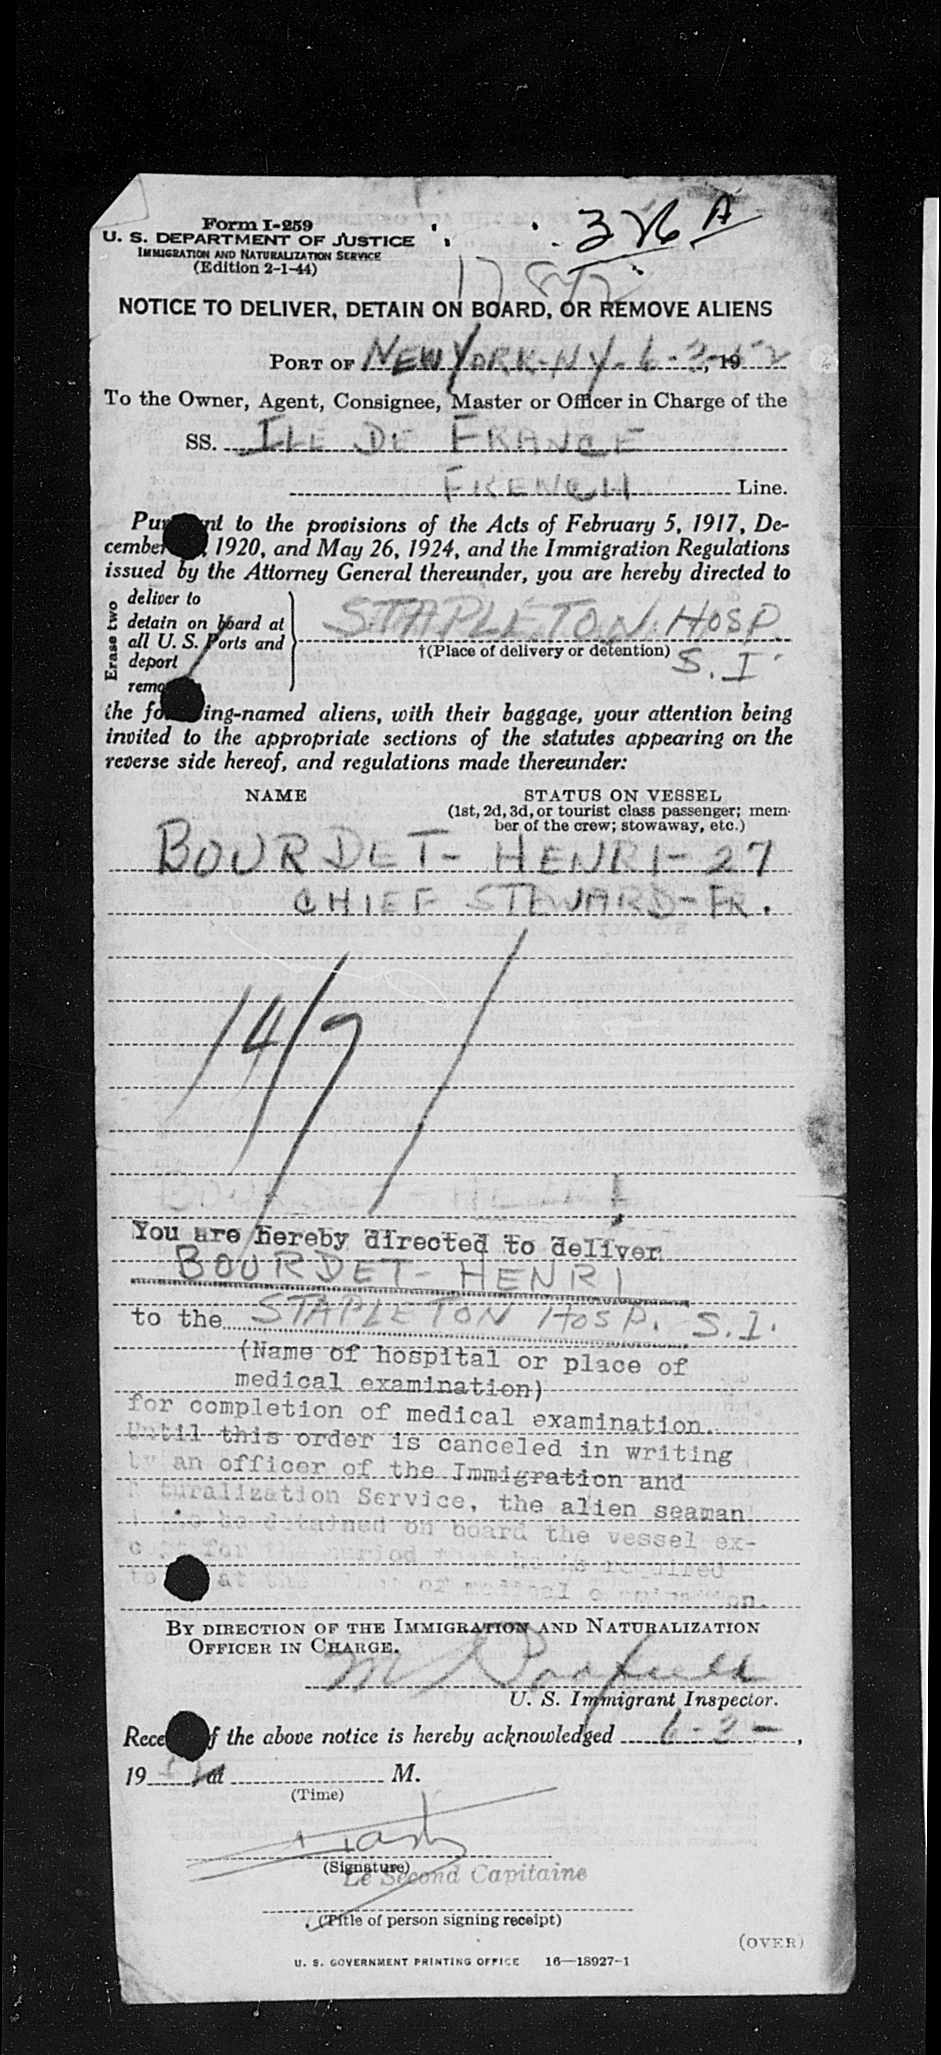 Form I-259
U. S. DEPARTMENT OF JUSTICE
IMMIGRATION AND NATURALIZATION SERVICE
(Edition 2-1-44)
326 A
NOTICE TO DELIVER, DETAIN ON BOARD, OR REMOVE ALIENS
PORT OF NEW YORK-NY-6-3-, 1952
To the Owner, Agent, Consignee, Master or Officer in Charge of the
SS. ILE DE FRANCE
FRENCH Line.
Pursuant to the provisions of the Acts of February 5, 1917, De-
cember , 1920, and May 26, 1924, and the Immigration Regulations
issued by the Attorney General thereunder, you are hereby directed to
Erase two
deliver to
detain on board at
all U. S. Ports and
deport
remove
STAPLETON HOSP.
†(Place of delivery or detention)
S. I.
the following-named aliens, with their baggage, your attention being
invited to the appropriate sections of the statutes appearing on the
reverse side hereof, and regulations made thereunder:
NAME
STATUS ON VESSEL
(1st, 2d, 3d, or tourist class passenger; mem-
ber of the crew; stowaway, etc.)
BOURDET- HENRI- 27
CHIEF STEWARD-FR.
14/7
You are hereby directed to deliver
BOURDET- HENRI
to the STAPLETON HOSP. S.I.
(Name of hospital or place of
medical examination)
for completion of medical examination.
Until this order is canceled in writing
by an officer of the Immigration and
Naturalization Service, the alien seaman
be detained on board the vessel ex-
for the period that he is required
at the of medical examination.
BY DIRECTION OF THE IMMIGRATION AND NATURALIZATION
OFFICER IN CHARGE.
U. S. Immigrant Inspector.
Receipt of the above notice is hereby acknowledged 6-3-,
19 52 at M.
(Time)
(Signature)
Le Second Capitaine
(Title of person signing receipt)
(OVER)
U. S. GOVERNMENT PRINTING OFFICE 16—18927-1